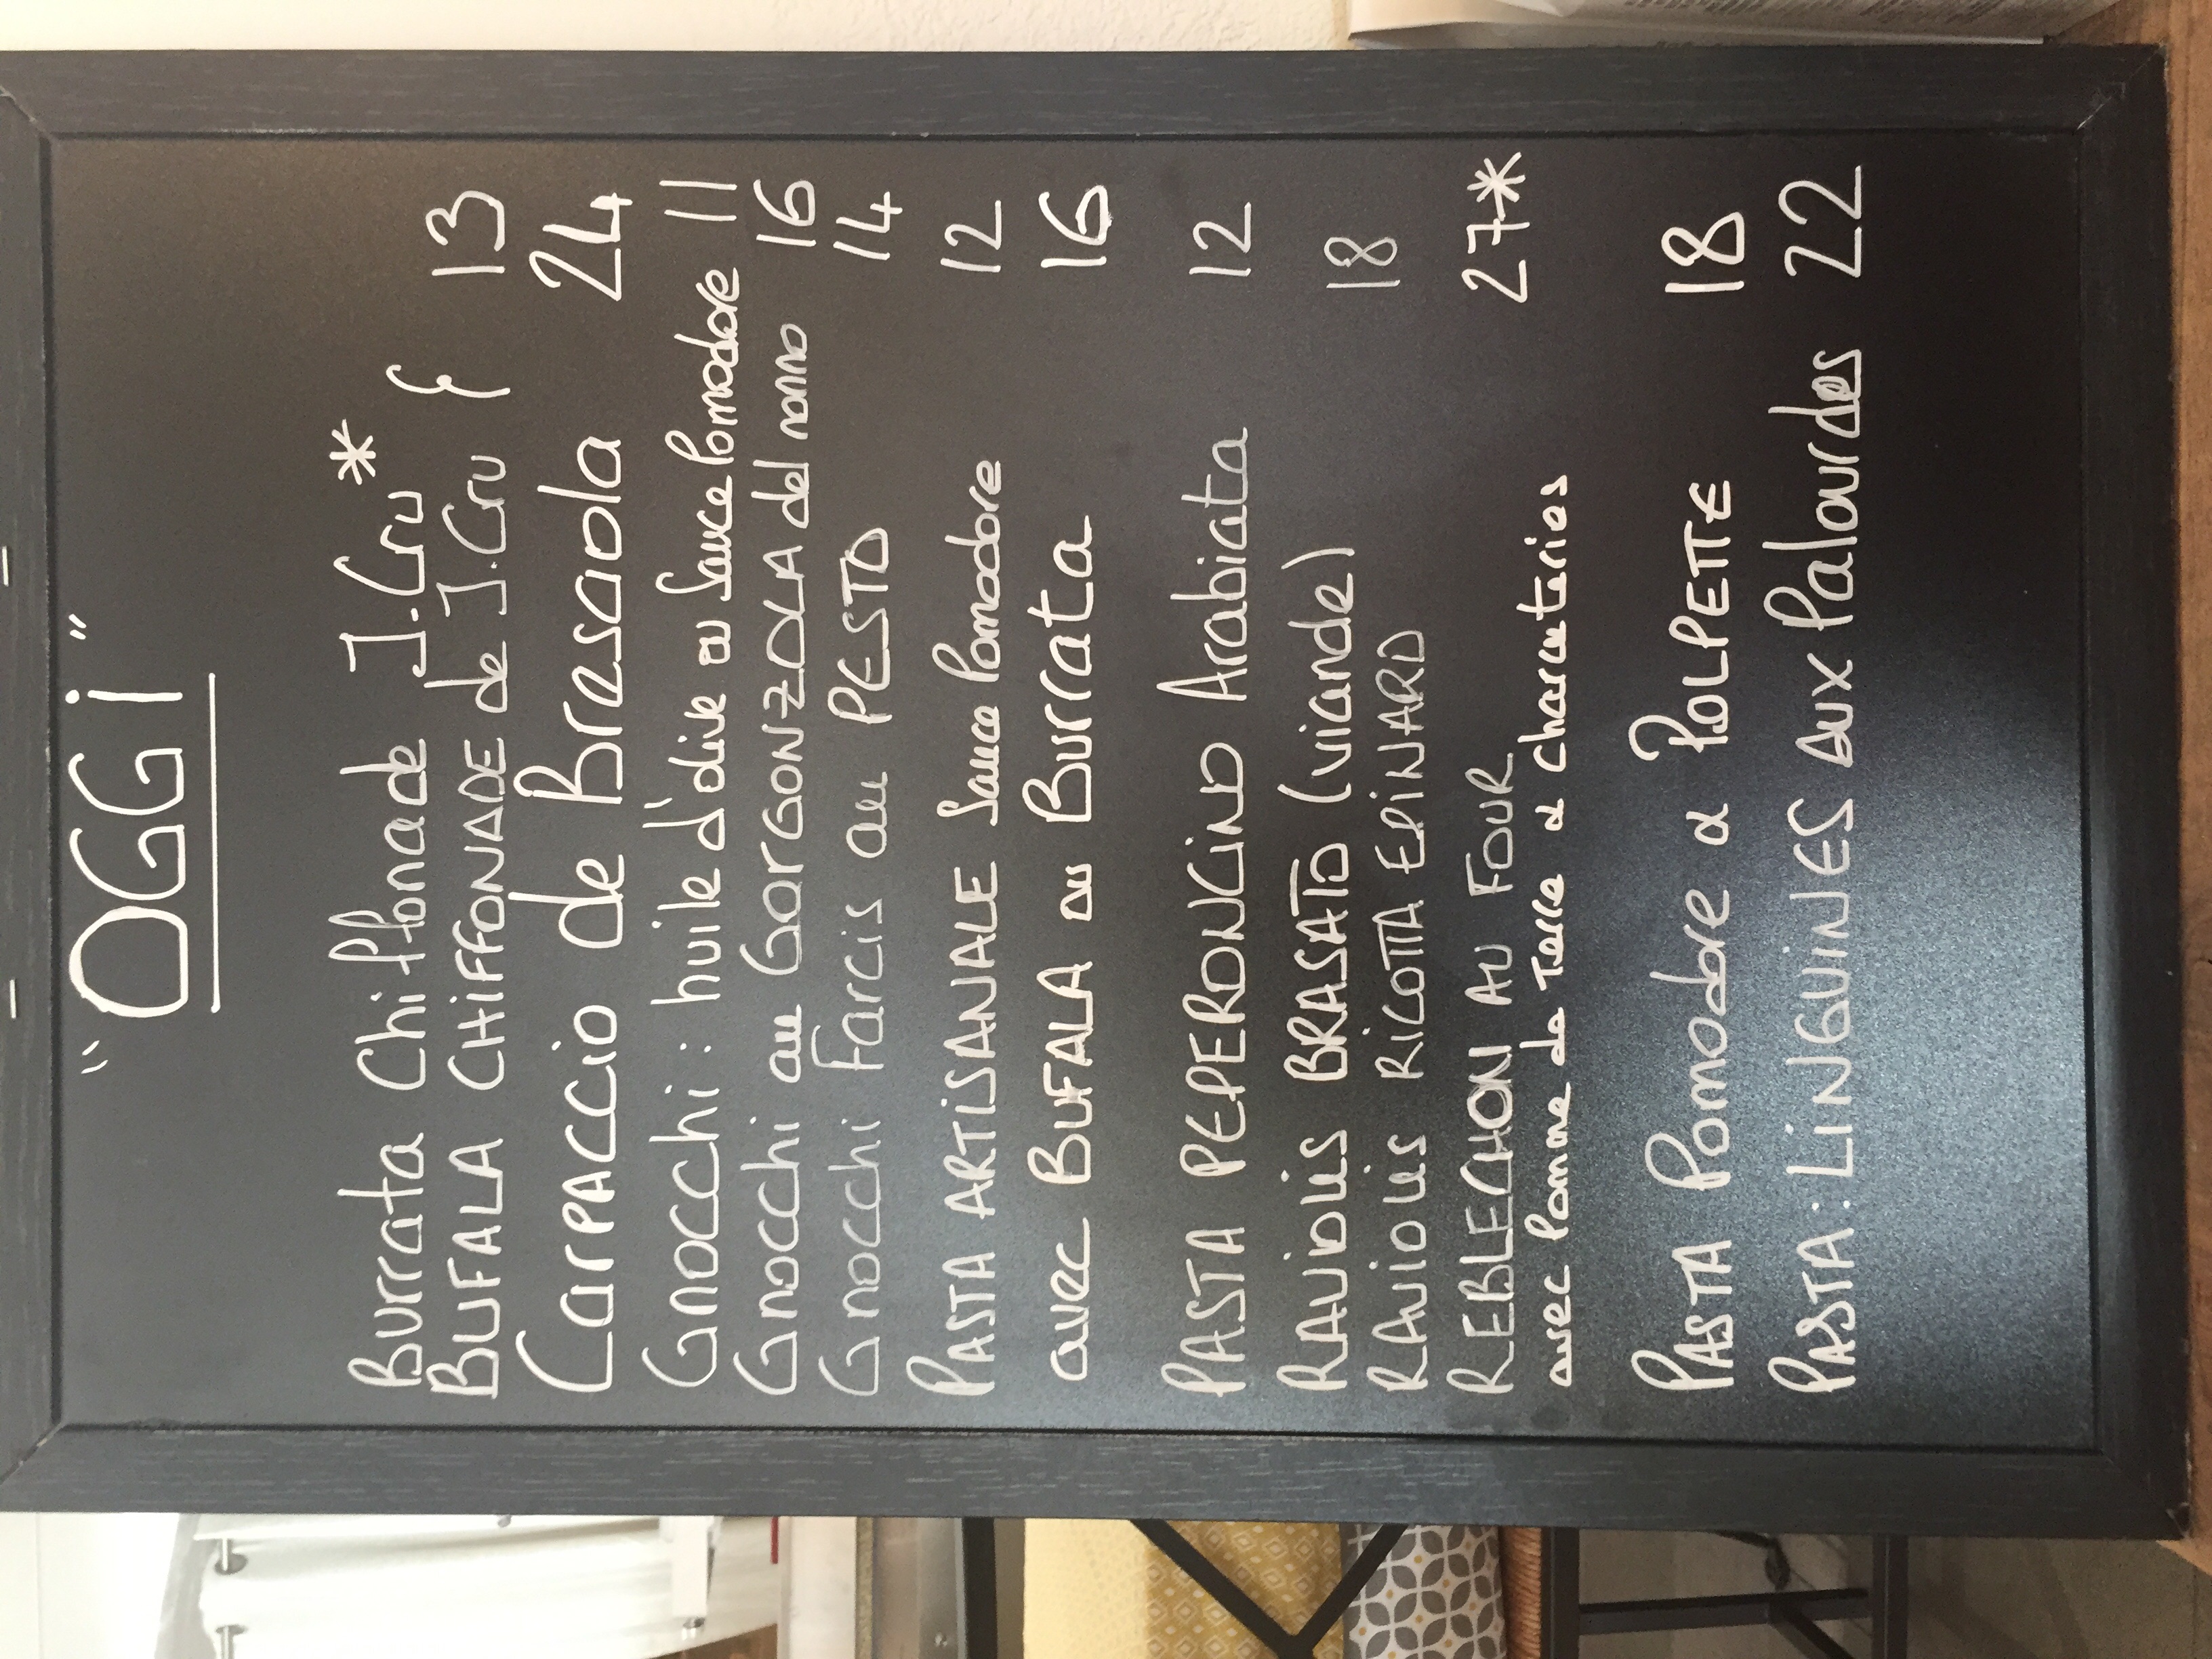 "OGGi"
Burrata Chiffonade J.Cru *
BUFALA CHiFFONADE de J.Cru } 13
CarPACCiO de Bresaola 24
Gnocchi : huile d'olive ou Sauce Pomodore 11
Gnocchi au GorGONZOLA del nonno 16
Gnocchi Farcis au PESTO 14
PASTA ARTiSANALE Sauce Pomodore 12
avec BUFALA ou Burrata 16
PASTA PEPERONCiNO Arabiata 12
RAViOLiS BRASATO (viande) 18
RAViOLiS RiCOTTA EPiNARD
REBLECHON AU FOUR 27*
avec Pomme de Terre & charcuteries
PASTA Pomodore & POLPETTE 18
PASTA : LiNGUiNES AUX Palourdes 22